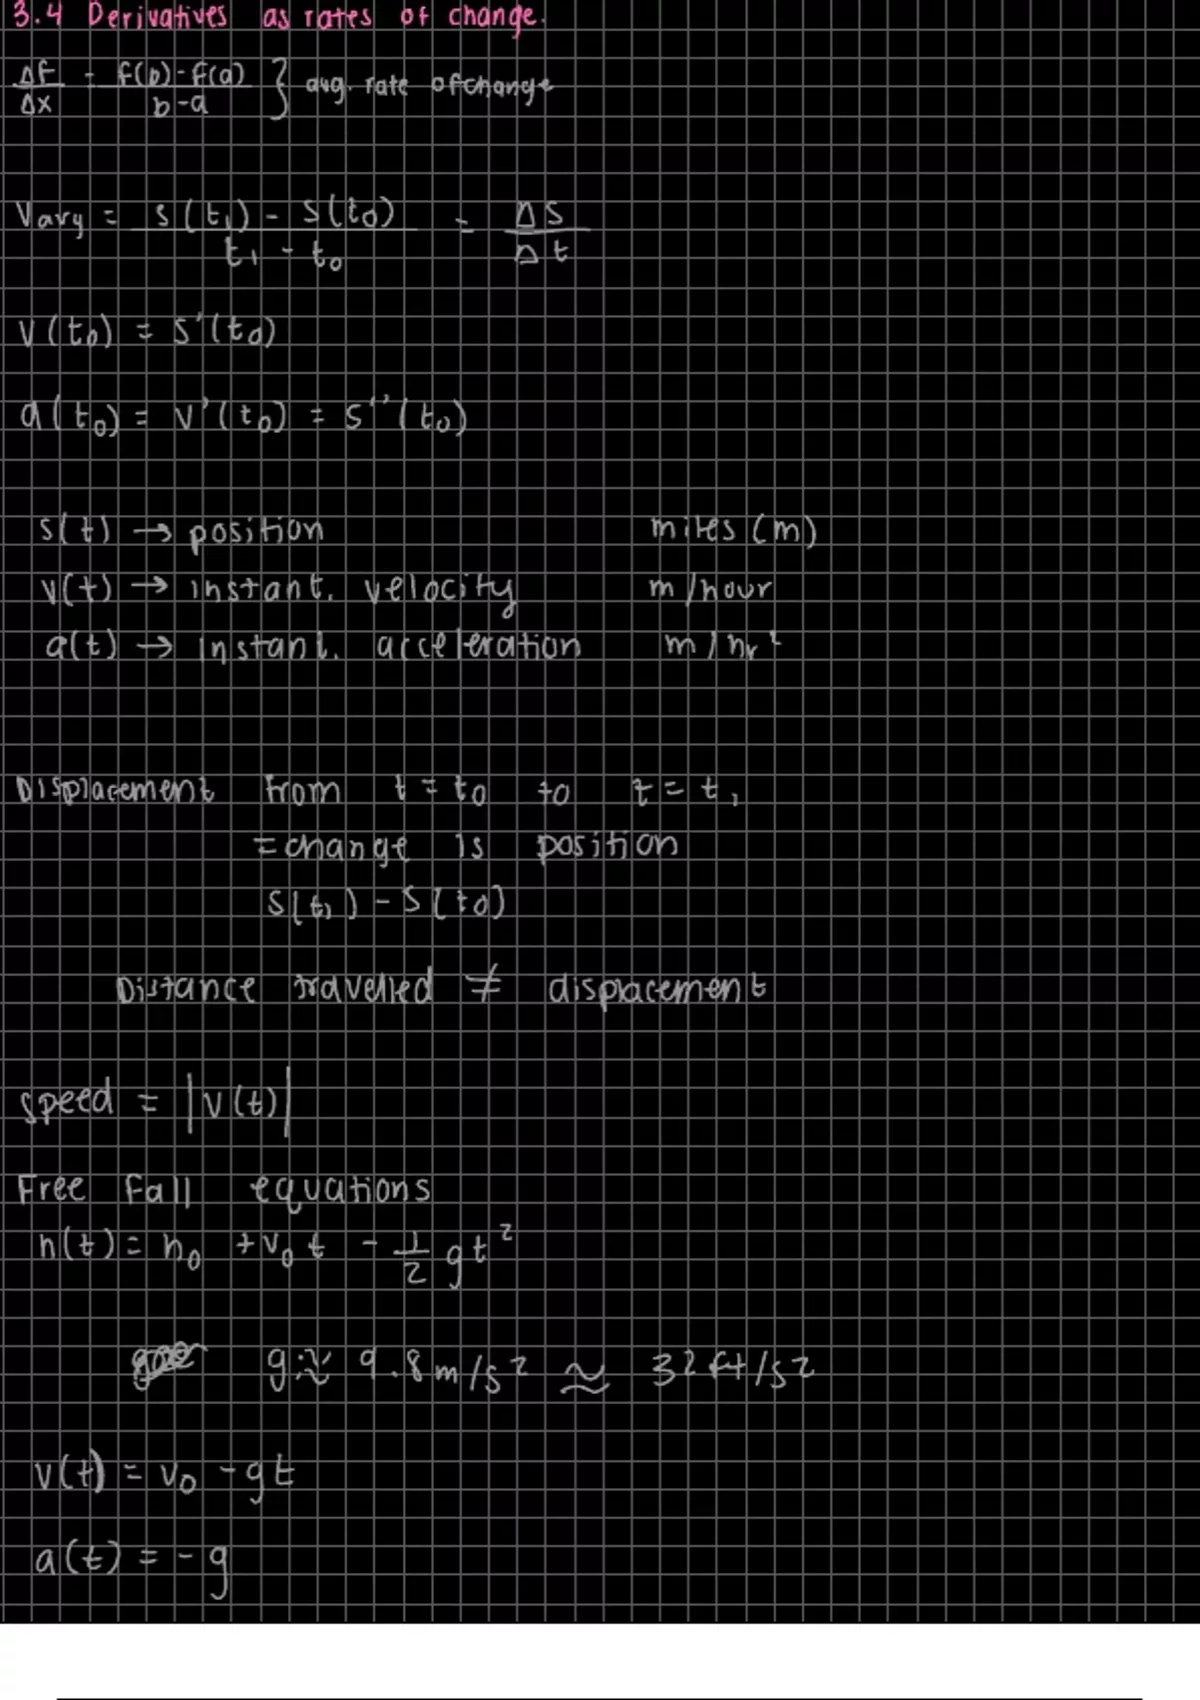 3.4 Derivatives as rates of change.
Δf/Δx = f(b)-f(a)/b-a } avg. rate of change
Vavg = s(t₁) - s(t₀)/t₁ - t₀ = Δs/Δt
v(t₀) = s'(t₀)
a(t₀) = v'(t₀) = s''(t₀)
s(t) → position miles (m)
v(t) → instant. velocity m/hour
a(t) → instant. acceleration m/hr²
Displacement from t = t₀ to t = t₁
= change is position
s(t₁) - s(t₀)
Distance travelled ≠ displacement
speed = |v(t)|
Free Fall equations
h(t) = h₀ + v₀t - 1/2 gt²
g ≈ 9.8 m/s² ≈ 32 ft/s²
v(t) = v₀ - gt
a(t) = - g